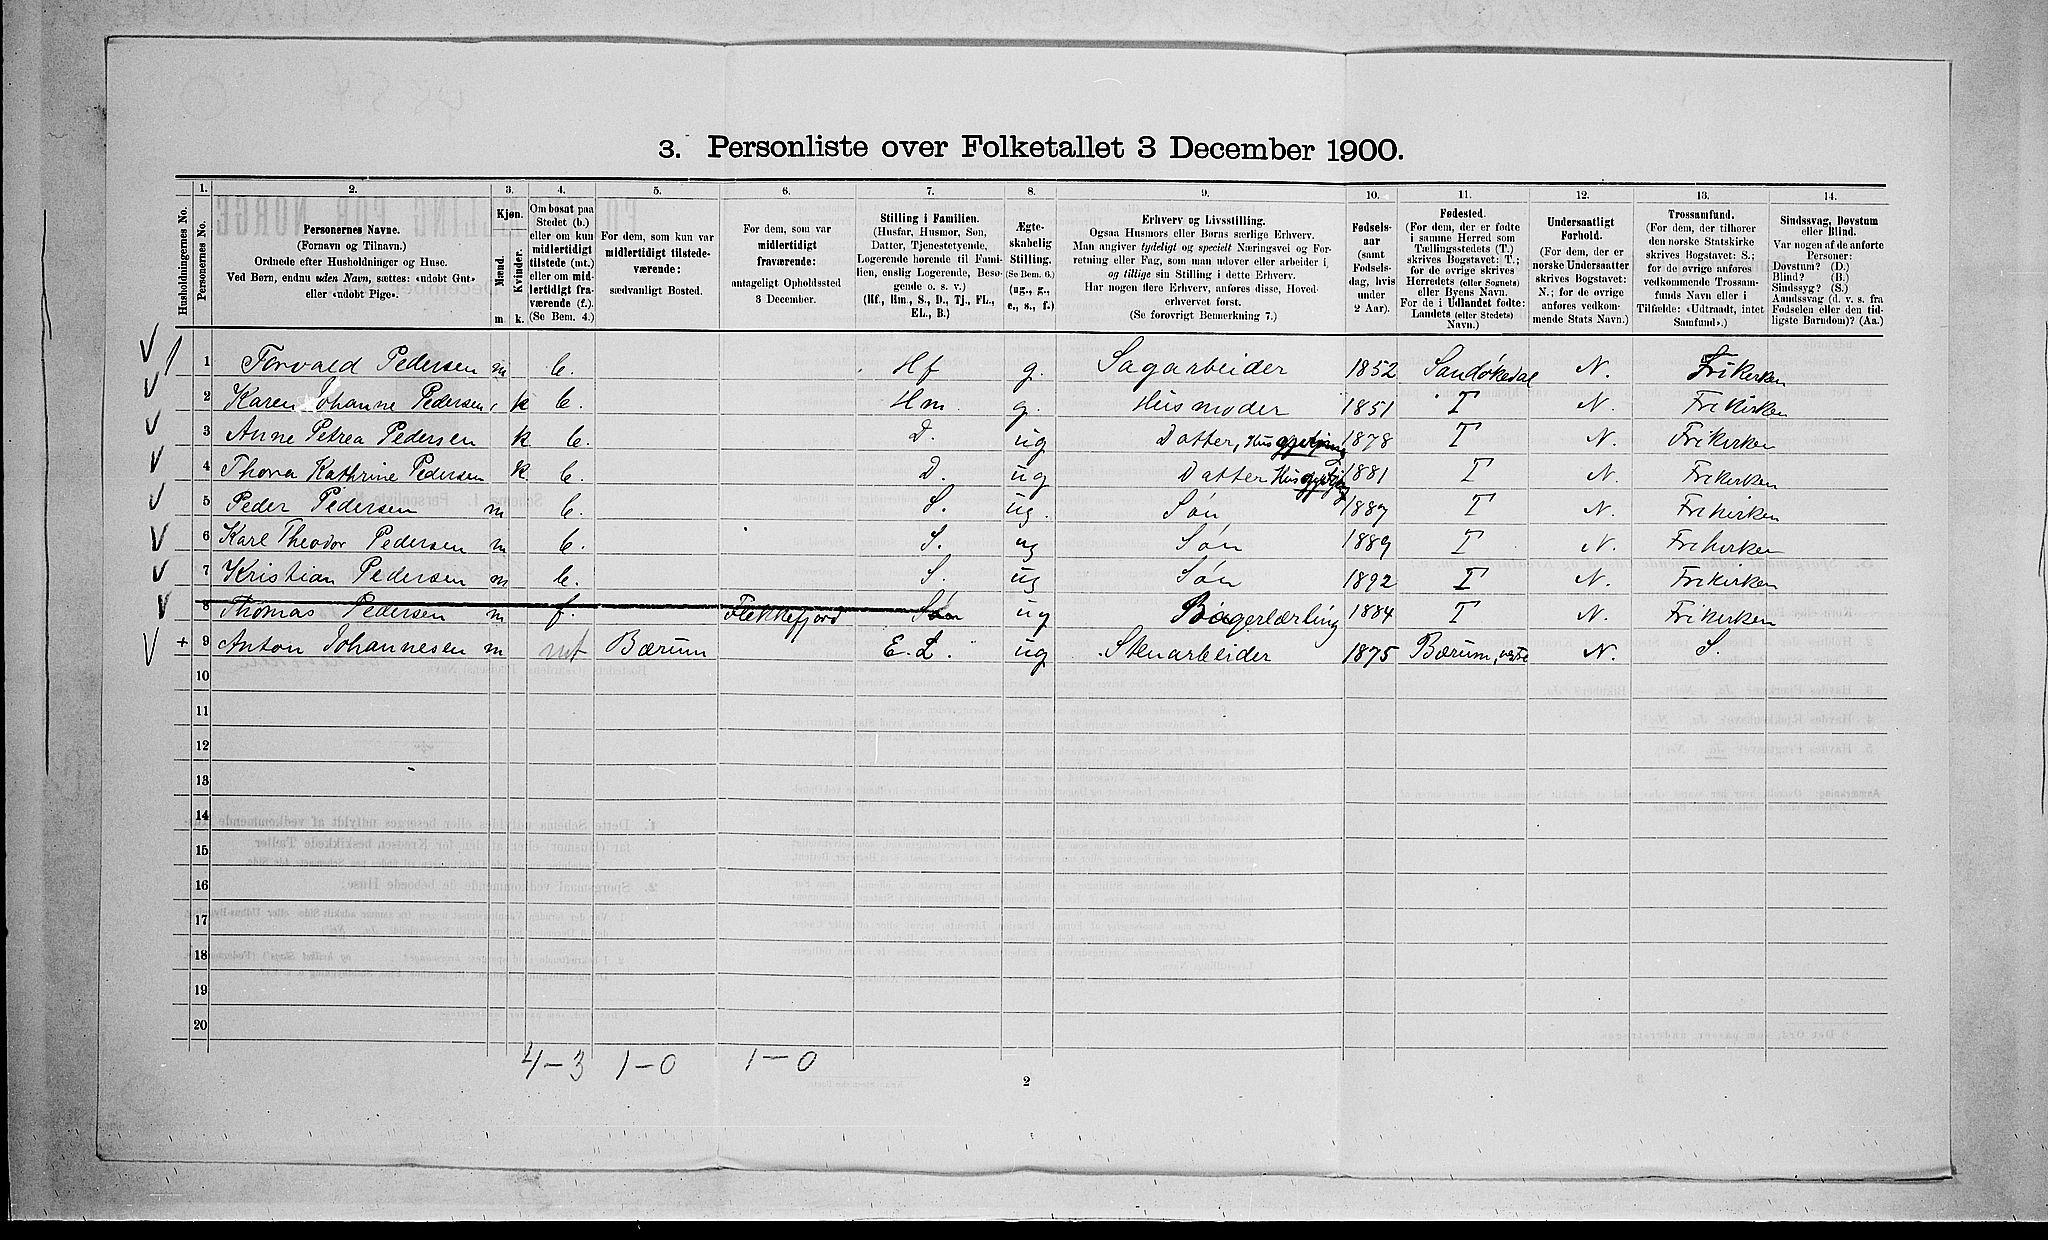 3. Personliste over Folketallet 3 December 1900.
Husholdningernes No.
1. Personernes No.
2. Personernes Navne. (Fornavn og Tilnavn.) Ordnede efter Husholdninger og Huse. Ved Børn, endnu uden Navn, sættes: «udøbt Gut» eller «udøbt Pige».
3. Kjøn. Mænd. m Kvinder. k.
4. Om bosat paa Stedet (b.) eller om kun midlertidigt tilstede (mt.) eller om midlertidigt fraværende (f.) (Se Bem. 4.)
5. For dem, som kun var midlertidigt tilstedeværende: sædvanligt Bosted.
6. For dem, som var midlertidigt fraværende: antageligt Opholdssted 3 December.
7. Stilling i Familien. (Husfar, Husmor, Søn, Datter, Tjenestetyende, Logerende hørende til Familien, enslig Logerende, Besøgende o. s. v.) (Hf, Hm, S., D., Tj., FL., EL., B.)
8. Ægteskabelig Stilling. (Se Bem. 6.) (ug., g., e., s., f.)
9. Erhverv og Livsstilling. Ogsaa Husmors eller Børns særlige Erhverv. Man angiver tydeligt og specielt Næringsvei og Forretning eller Fag, som man udøver eller arbeider i, og tillige sin Stilling i dette Erhverv. Har nogen flere Erhverv, anføres disse, Hovederhvervet først. (Se forøvrigt Bemerkning 7.)
10. Fødselsaar (samt Fødselsdag, hvis under 2 Aar).
11. Fødested. (For dem, der er fødte i samme Herred som Tællingsstedets (T.) skrives Bogstavet: T.; for de øvrige skrives Herredets (eller Sognets) eller Byens Navn. For de i Udlandet fødte: Landets (eller Stedets) Navn.)
12. Undersaatligt Forhold. (For dem, der er norske Undersaatter skrives Bogstavet: N.; for de øvrige anføres vedkommende Stats Navn.)
13. Trossamfund. (For dem, der tilhører den norske Statskirke skrives Bogstavet: S.; for de øvrige anføres vedkommende Trossamfunds Navn eller i Tilfælde: «Udtraadt, intet Samfund».)
14. Sindssvag, Døvstum eller Blind. Var nogen af de anførte Personer: Døvstum? (D.) Blind? (B.) Sindssyg? (S.) Aandssvag (d. v. s. fra Fødselen eller den tidligste Barndom)? (Aa.)
1 Torvald Pedersen m b. Hf g. Sagarbeider 1852 Sandøkedal N. Frikirken
2 Karen Johanne Pedersen k b. Hm. g. Husmoder 1851 T N. Frikirken
3 Anne Petrea Pedersen k b. D. ug Datter, 1878 T N. Frikirken
4 Thora Kathrine Pedersen k b. D. ug Datter 1881 T N. Frikirken
5 Peder Pedersen m b. S. ug. Søn 1887 T N. Frikirken
6 Karl Theodor Pedersen m b. S. ug Søn 1889 T N. Frikirken
7 Kristian Pedersen m b. S. ug Søn 1892 T N. Frikirken
8 Thomas Pedersen m f. Flekkefjord Søn ug Bagerlærling 1884 T N. Frikirken
+ 9 Anton Johannesen m mt Bærum E. L. ug Stenarbeider 1875 Bærum, N. S.
10
11
12
13
14
15
16
17
18
19
20
4-3 1-0 1-0
2